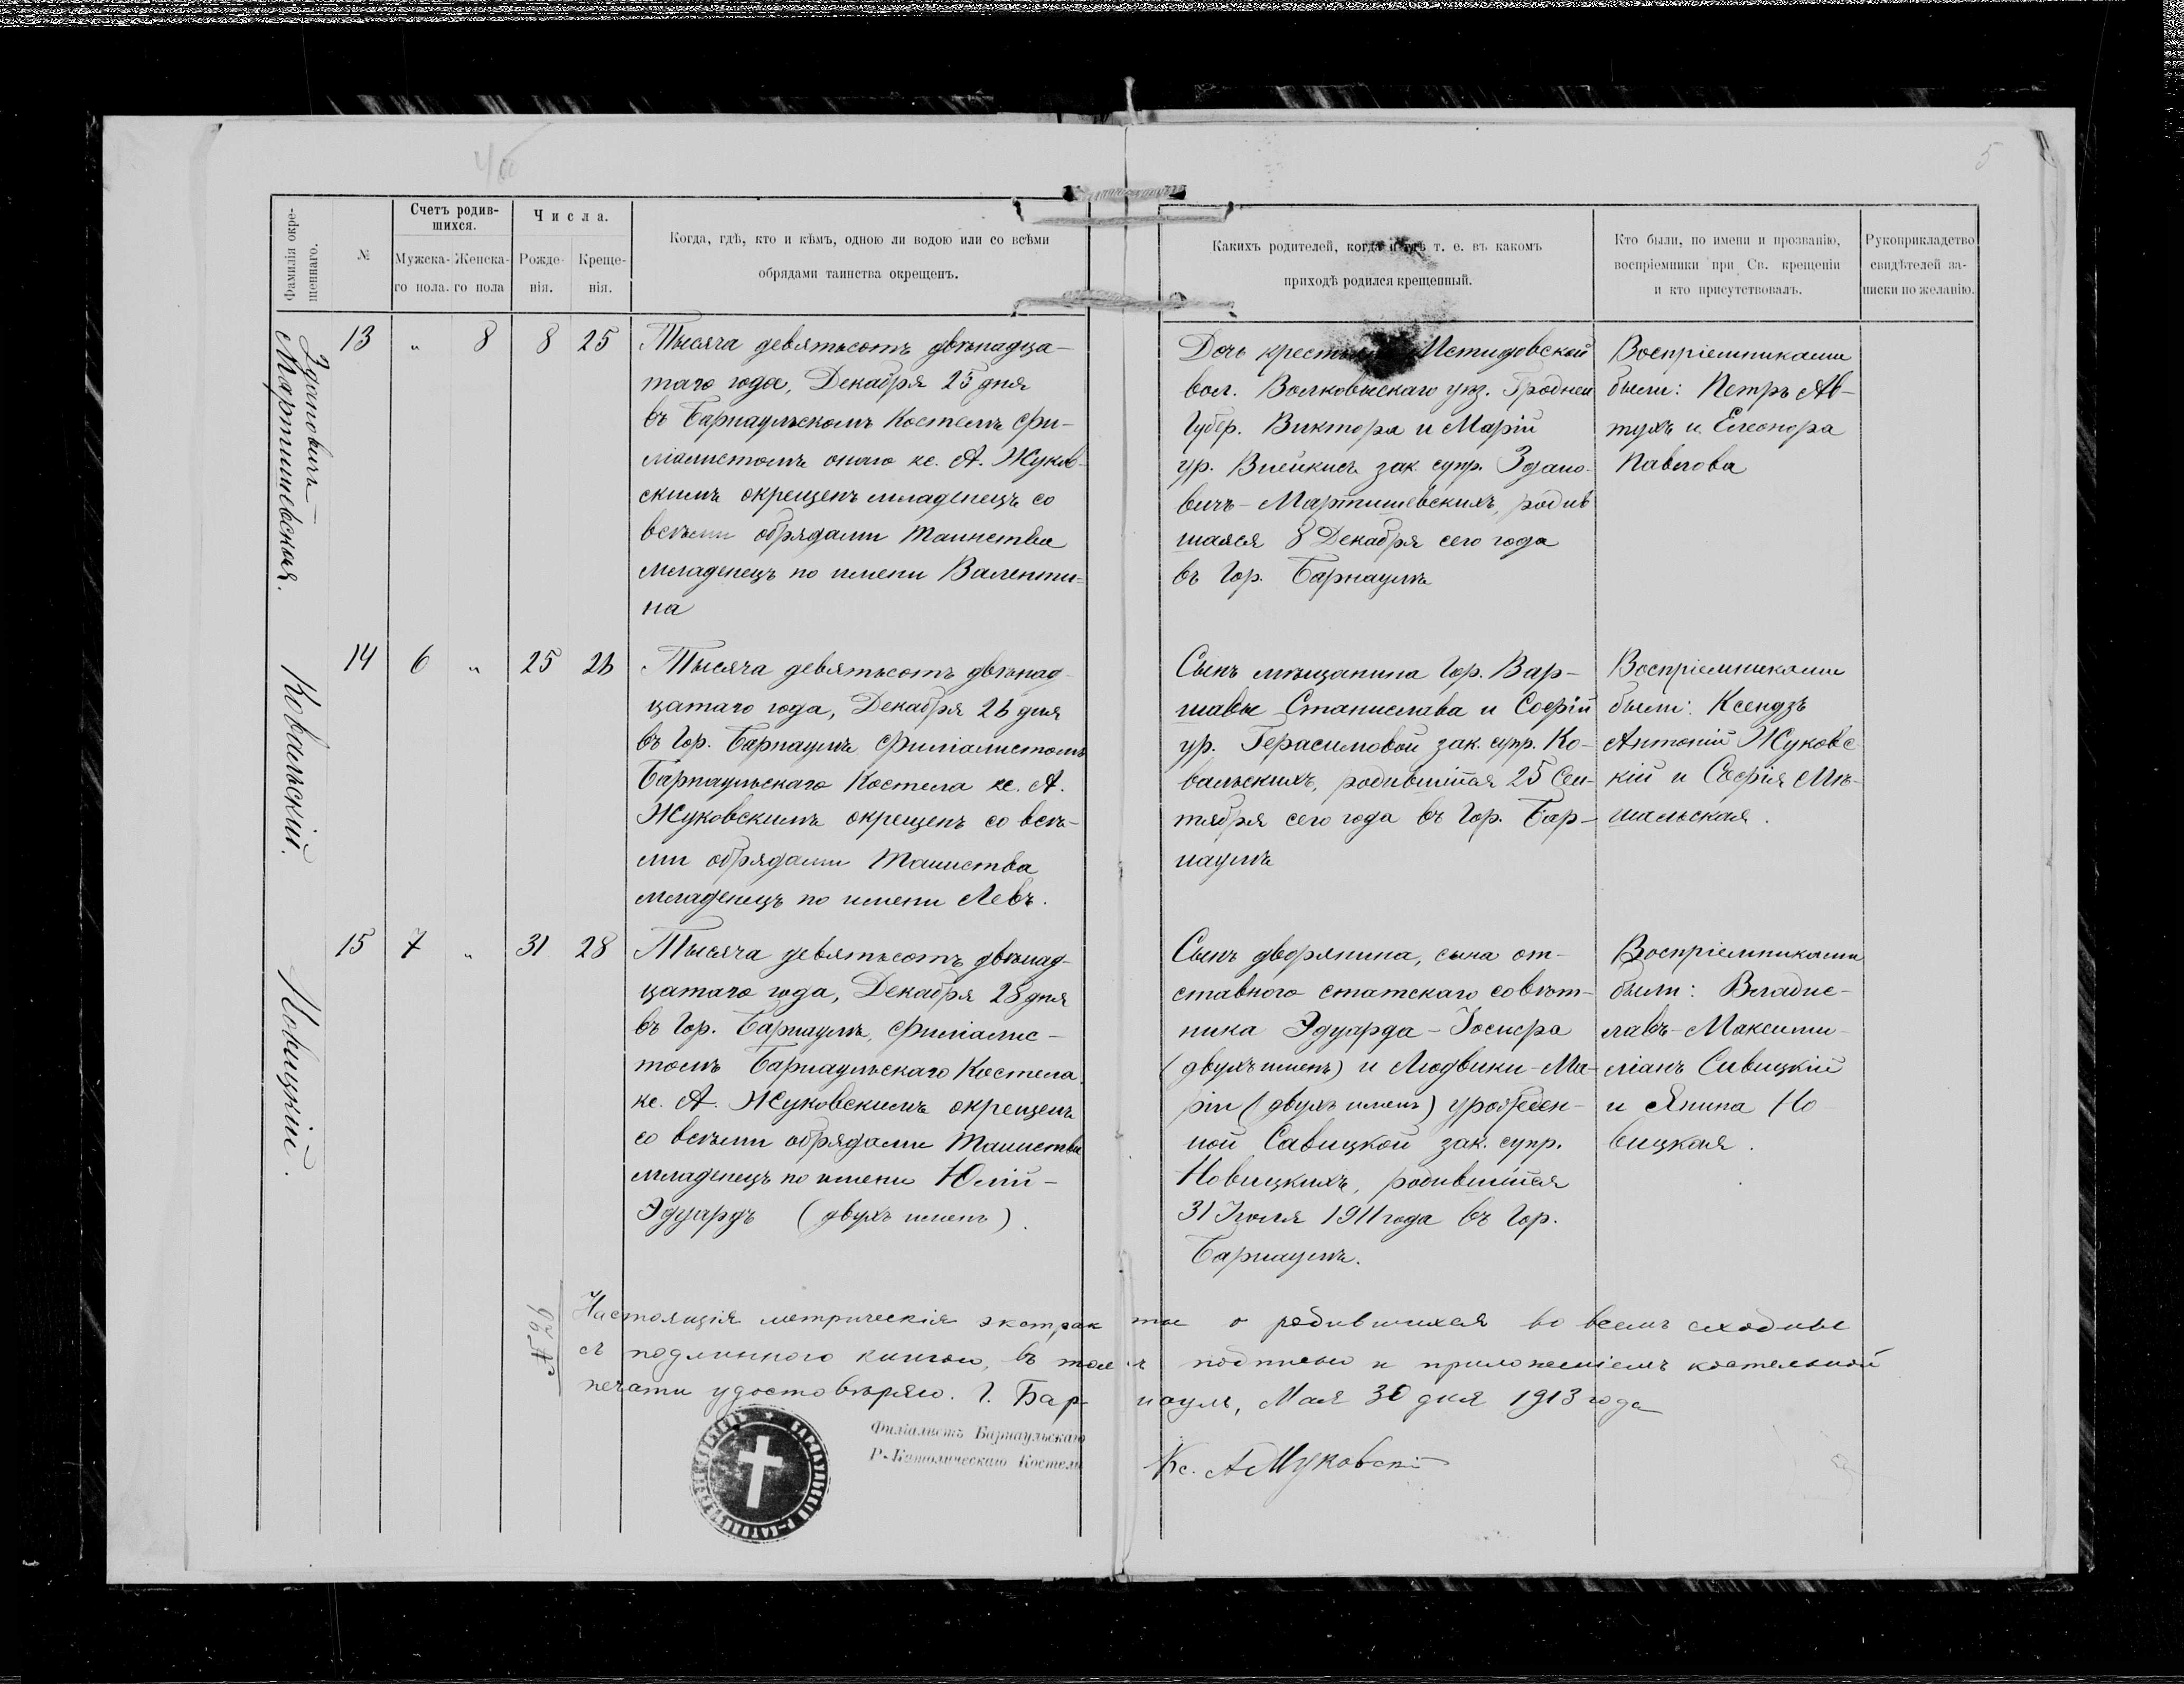 5
Фамилія окре-
щеннаго.
№
Счетъ родив-
шихся.
Мужска-
го пола.
Женска-
го пола
Числа.
Рожде-
нія.
Креще-
нія.
Когда, гдѣ, кто и кѣмъ, одною ли водою или со всѣми
обрядами таинства окрещенъ.
Какихъ родителей, когда и гдѣ т. е. въ какомъ
приходѣ родился крещенный.
Кто были, по имени и прозванію,
воспріемники при Св. крещеніи
и кто присутствовалъ.
Рукоприкладство
свидѣтелей за-
писки по желанію.
Здановичъ-
Мартишевская.
13 „ 8 8 25
Тысяча девятьсотъ двѣнадца-
таго года, Декабря 25 дня
въ Барнаульскомъ Костелѣ фи-
ліалистомъ онаго кс. А. Жуков-
скимъ окрещенъ младенецъ со
всѣми обрядами Таинства
младенецъ по имени Валенти-
на
Дочь Истидовской
вол. Волковыскаго уѣз. Гроднен
Губер. Виктора и Маріи
ур. зак. супр. Здано-
вичъ-Мартишевскихъ, родив
шаяся 8 Декабря сего года
въ Гор. Барнаулѣ
Воспріемниками
были: Петръ Ав-
тухъ и Елеонора
Павлова
Ковальскій.
14 6 „ 25 26
Тысяча девятьсотъ двѣнад-
цатаго года, Декабря 26 дня
въ Гор. Барнаулѣ Филіалистомъ
Барнаульскаго Костела кс. А.
Жуковскимъ окрещенъ со всѣ-
ми обрядами Таинства
младенецъ по имени Левъ.
Сынъ мѣщанина Гор. Вар-
шавы Станислава и Софіи
ур. Герасимовой зак. супр. Ко-
вальскихъ, родившійся 25 Сен-
тября сего года въ Гор. Бар-
наулѣ
Воспріемниками
были: Ксендзъ
Антоній Жуковс
кій и Софія Мѣ-
шальская.
Новицкій.
15 7 „ 31 28
Тысяча девятьсотъ двѣнад-
цатаго года, Декабря 28 дня
въ Гор. Барнаулѣ, филіалис-
томъ Барнаульскаго Костела
кс. А. Жуковскимъ окрещенъ
со всѣми обрядами Таинства
младенецъ по имени Юлій-
Эдуардъ (двухъ именъ).
Сынъ дворянина, сына от-
ставного статскаго совѣт-
ника Эдуарда-Іосифа
(двухъ именъ) и Людвики-Ма-
ріи (двухъ именъ) урожден-
ной Савицкой зак. супр.
Новицкихъ, родившійся
31 Іюля 1911 года въ Гор.
Барнаулѣ.
Воспріемниками
были: Владис-
лавъ-Максими-
ліанъ Сивицкій
и Янина Но
вицкая.
Настоящія метрическія экстракты о родившихся во всемъ сходны
съ подлинною книгою, въ томъ подписью и приложеніемъ костельной
печати удостовѣряю. Г. Барнаулъ, Мая 30 дня 1913 года
Филіалистъ Барнаульскаго
Р-Католическаго Костела
Кс. А Жуковскі